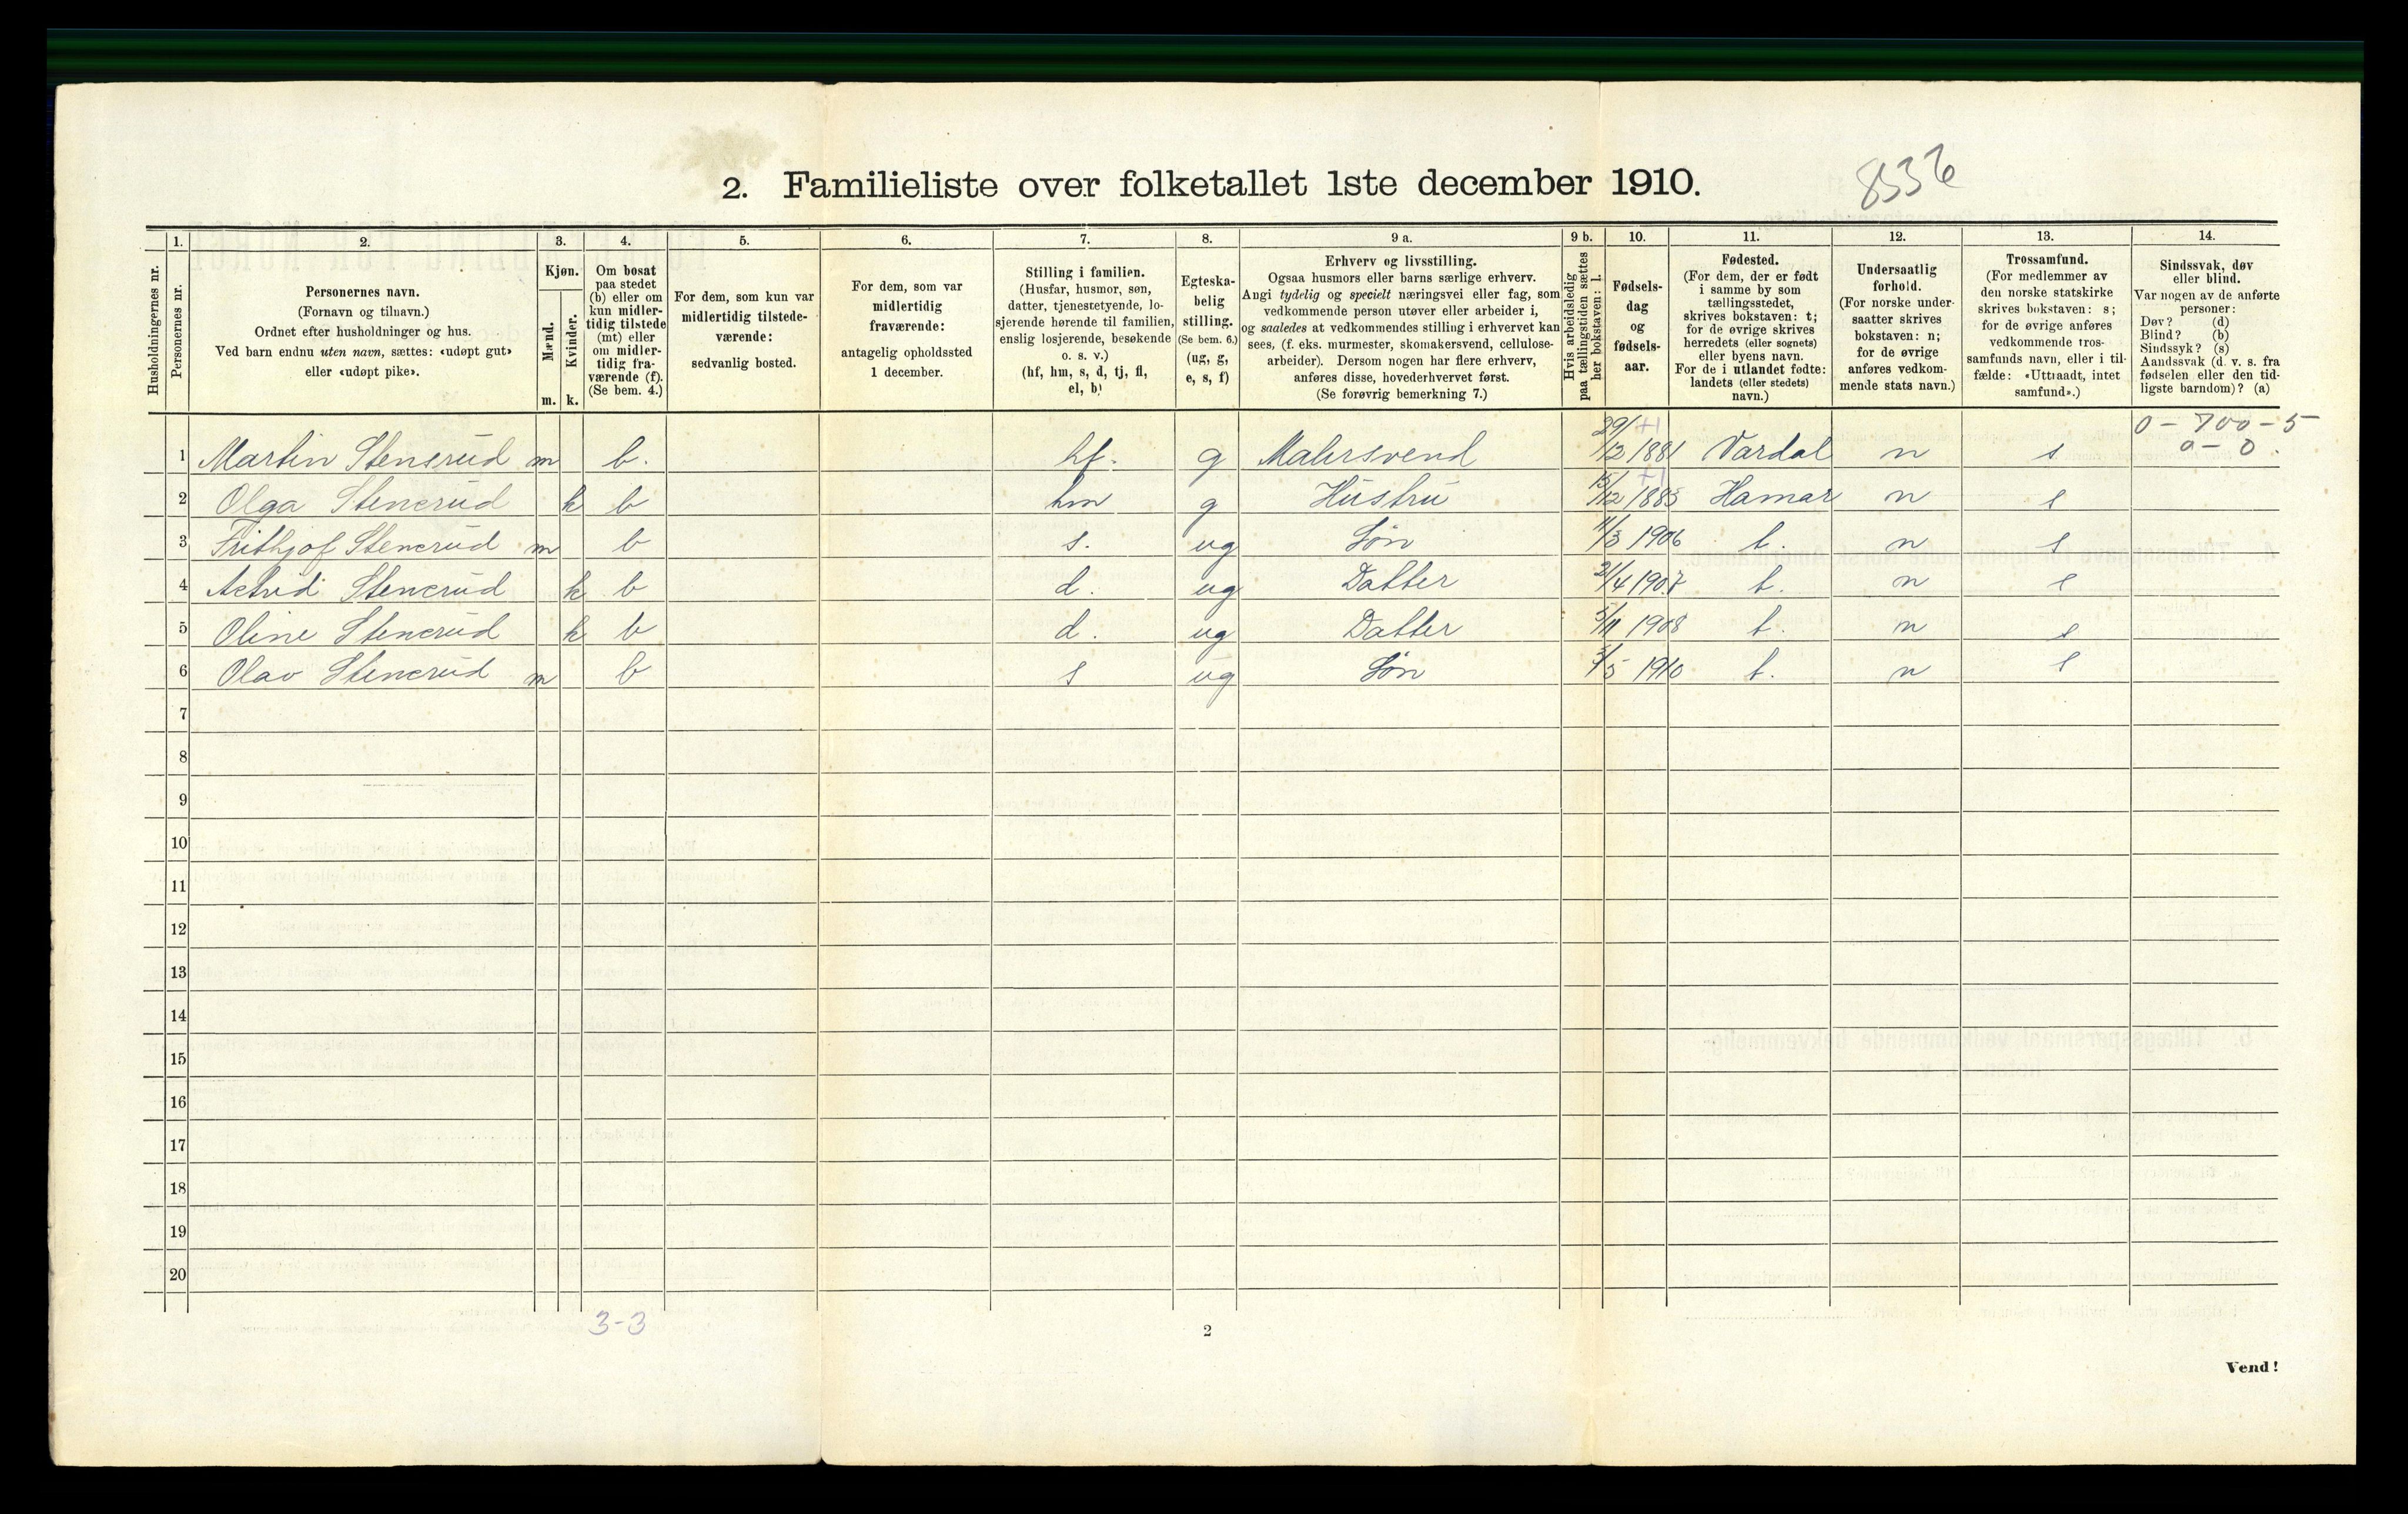 2. Familieliste over folketallet 1ste december 1910.
8536
Husholdningernes nr.
1.
Personernes nr.
2.
Personernes navn.
(Fornavn og tilnavn.)
Ordnet efter husholdninger og hus.
Ved barn endnu uten navn, sættes: «udøpt gut»
eller «udøpt pike».
3.
Kjøn.
Mænd.
Kvinder.
m. k.
4.
Om bosat
paa stedet
(b) eller om
kun midler-
tidig tilstede
(mt) eller
om midler-
tidig fra-
værende (f).
(Se bem. 4.)
5.
For dem, som kun var
midlertidig tilstede-
værende:
sedvanlig bosted.
6.
For dem, som var
midlertidig
fraværende:
antagelig opholdssted
1 december.
7.
Stilling i familien.
(Husfar, husmor, søn,
datter, tjenestetyende, lo-
sjerende hørende til familien,
enslig losjerende, besøkende
o. s. v.)
(hf, hm, s, d, tj, fl,
el, b)
8.
Egteska-
belig
stilling.
(Se bem. 6.)
(ug, g,
e, s, f)
9 a.
Erhverv og livsstilling.
Ogsaa husmors eller barns særlige erhverv.
Angi tydelig og specielt næringsvei eller fag, som
vedkommende person utøver eller arbeider i,
og saaledes at vedkommendes stilling i erhvervet kan
sees, (f. eks. murmester, skomakersvend, cellulose-
arbeider). Dersom nogen har flere erhverv,
anføres disse, hovederhvervet først.
(Se forøvrig bemerkning 7.)
9 b.
Hvis arbeidsledig
paa tællingstiden sættes
her bokstaven: l.
10.
Fødsels-
dag
og
fødsels-
aar.
11.
Fødested.
(For dem, der er født
i samme by som
tællingsstedet,
skrives bokstaven: t;
for de øvrige skrives
herredets (eller sognets)
eller byens navn.
For de i utlandet fødte:
landets (eller stedets)
navn.)
12.
Undersaatlig
forhold.
(For norske under-
saatter skrives
bokstaven: n;
for de øvrige
anføres vedkom-
mende stats navn.)
13.
Trossamfund.
(For medlemmer av
den norske statskirke
skrives bokstaven: s;
for de øvrige anføres
vedkommende tros-
samfunds navn, eller i til-
fælde: «Uttraadt, intet
samfund».)
14.
Sindssvak, døv
eller blind.
Var nogen av de anførte
personer:
Døv? (d)
Blind? (b)
Sindssyk? (s)
Aandssvak (d. v. s. fra
fødselen eller den tid-
ligste barndom)? (a)
0 - 700 - 5
0 - 0
1 Martin Stensrud m b. hf. g Malersvend 29/12 1881 Vardal n s
2 Olga Stensrud k b hm g Hustru 15/12 1885 Hamar n s
3 Frithjof Stensrud m b s. ug Søn 11/3 1906 t. n s
4 Astrid Stensrud k b d. ug Datter 21/4 1907 t. n s
5 Oline Stensrud k b d. ug Datter 5/11 1908 t. n s
6 Olav Stensrud m b s ug Søn /5 1910 t. n s
7
8
9
10
11
12
13
14
15
16
17
18
19
20
3-3
2
Vend!